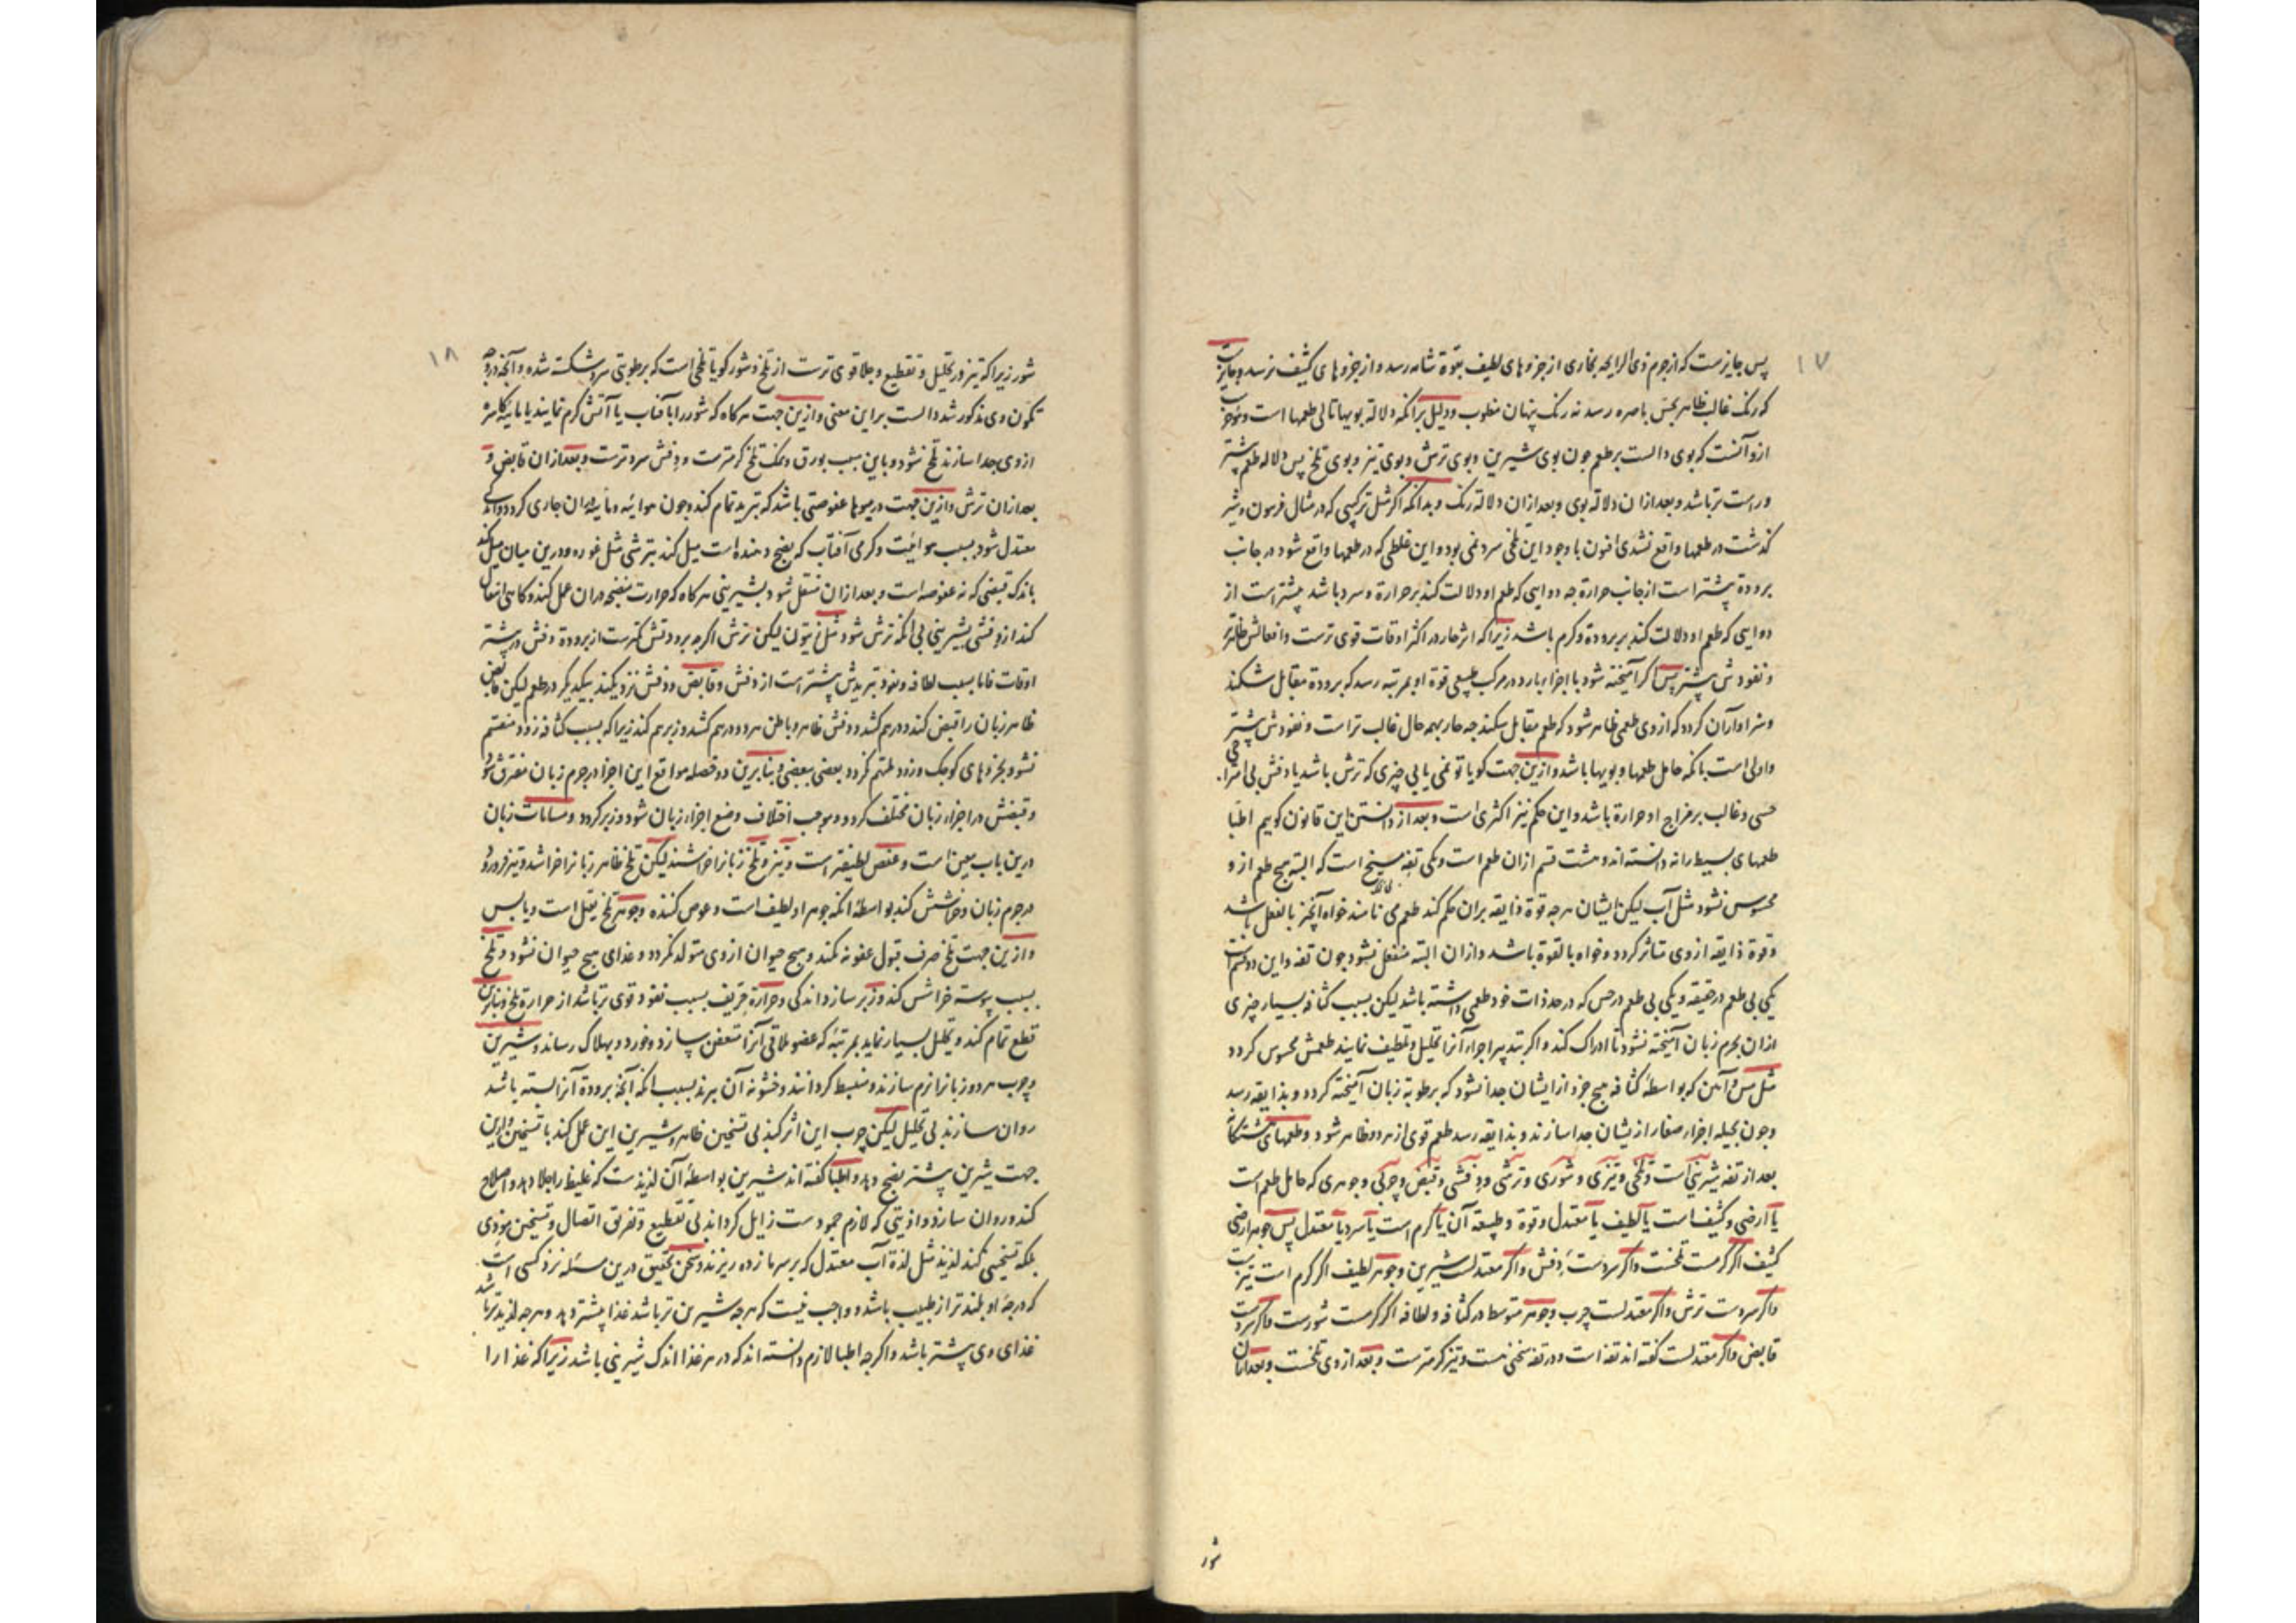 ۱۷
پس جایزست که از جرم ذی الرایحه بخاری از جزوهای لطیف بقوة شامه رسد و از جزوهای کثیف نرسد و جایزست
که رنک غالب ظاهر بحس باصره رسد نه رنک پنهان مغلوب ودلیل برانکه دلالة بویها تالی طعمها است
ازو آنست که بوی دالست بر طعم جون بوی شیرین و بوی ترش و بوی تیز و بوی تلخ پس دلاله طعم بیشتر
و راست تر باشد و بعد ازان دلالة بوی و بعد ازان دلالة رنک و بدانکه اکر مثل ترکیبی که در مثال
کذشت در طعمها واقع نشدی افیون با وجود این تلخی سرد نمی بود و این غلطی که در طعمها واقع شود در جانب
برودة بیشتر است از جانب حرارة جه دوایی که طعم او دلالت کند بر حرارة و سرد باشد بیشتر است از
دوایی که طعم او دلالت کند بر برودة و کرم باشد زیرا که اثر حار در اکثر اوقات قوی ترست و افعالش ظاهرتر
و نفودش بیشتر پس اکر آمیخته شود با اجزاء بارد در مرکب طبیعی قوة او بمرتبه رسد که برودة مقابل شکند
و سزاوار آن کردد که از وی طعمی ظاهر شود که طعم مقابل بشکند جه حار بهمه حال غالب تر است و نفودش بیشتر
و اولی است بانکه حامل طعمها و بویها باشد و ازین جهت کویا تو نمی یابی جیزی که ترش باشد یا دفش بی امتزاج
حسی و غالب بر مزاج او حرارة باشد و این حکم نیز اکثری است و بعد از دانستن این قانون کوییم اطبا
طعمهای بسیط را نه دانسته اند و هشت قسم ازان طعم است و یکی تفه مسیخ است که البته هیج طعم از و
محسوس نشود مثل آب لیکن ایشان هرجه قوة ذایقه بران حکم کند طعم می نامند خواه آنجیز بالفعل باشد
و قوة ذایقه از وی متاثر کردد و خواه بالقوه باشد و ازان البته منفعل نشود جون تفه و این دو قسم است
یکی بی طعم در حقیقه و یکی بی طعم در حس که در حد ذات خود طعمی داشته باشد لیکن بسبب کثافه بسیار جیزی
ازان بجرم زبان آمیخته نشود تا ادراک کند و اکر بتدبیر اجزاء آنرا تحلیل و تلطیف نمایند طعمش محسوس کردد
مثل مس و آهن که بواسطه کثافه هیج جزو از ایشان جدا نشود که برطوبة زبان آمیخته کردد و بذایقه رسد
و جون بحیله اجزاء صغار ازیشان جدا سازند و بذایقه رسد طعم قوی از هر دو ظاهر شود و طعمهای هشتکانه
بعد از تفه شیرینی است و تلخی و تیزی و شوری و ترشی و دفشی و قبض و جربی و جوهری که حامل طعم است
یا ارضی و کثیف است یا لطیف یا معتدل و قوة و طبیعة آن یا کرم است یا سرد یا معتدل پس جوهر ارضی
کثیف اکر کرمست تلخست و اکر سردست دفش و اکر معتدلست شیرین و جوهر لطیف اکر کرم است تیزست
و اکر سردست ترش و اکر معتدلست جرب و جوهر متوسط در کثافه و لطافه اکر کرمست شورست و اکر سردست
قابض و اکر معتدلست کفته اند تفه است و در تفه سخنی هست و تیز کرمترست و بعد از وی تلخست و بعد ازان
شور
۱۸
شور زیرا که تیز در تحلیل و تقطیع و جلا قوی ترست از تلخ و شور کویا تلخی است که برطوبتی سرد شکسته شده و آنجه در وجه
تکون وی مذکور شد دالست بر این معنی و ازین جهت هرکاه که شور را بآفتاب یا آتش کرم نمایند یا
از وی جدا سازند تلخ شود و باین سبب بورق و نمک تلخ کرمترست و دفش سردترست و بعد ازان قابض و
بعد ازان ترش و ازین جهت در میوها عفوصتی باشد که تبرید تمام کند و جون هوائیه و مائیه دران جاری کردد و اندکی
معتدل شود بسبب هوائیت و کرمی آفتاب که نضج دهنده است میل کند بترشی مثل غوره و درین میان میل کند
باندک قبضی که نه عفوصه است و بعد ازان منتقل شود بشیرینی هرکاه که حرارت منضجه دران عمل کند و کاهی انتقال
کند از دفشی بشیرینی بی انکه ترش شود مثل زیتون لیکن ترش اکرجه برودتش کمترست از برودة دفش در بیشتر
اوقات فاما بسبب لطافه و نفوذ تبریدش بیشتر است از دفش و قابض و دفش نزدیکند بیکدیکر در طعم لیکن قابض
ظاهر زبان را قبض کند و درهم کشد و دفش ظاهر و باطن هر دو درهم کشد و زبر هم کند زیرا که بسبب کثافه زود منقسم
نشود بجزوهای کوجک و زود ملتئم نکردد بعضی ببعضی و بنابرین دو خصله مواقع این اجزا در جرم زبان متفرق شود
و قبضش در اجزاء زبان مختلف کردد و موجب اختلاف وضع اجزاء زبان شود و زبر کردد و مسامات زبان
درین باب معین است و عفص لطیفتر است و تیز و تلخ زبانرا خراشند لیکن تلخ ظاهر زبانرا خراشد و تیز فرو رود
در جرم زبان و خراشش کند بواسطه انکه جوهر او لطیف است و غوص کننده و جوهر تلخ ثقیل است و یابس
و ازین جهت تلخ صرف قبول عفونه نکند و هیج حیوان از وی متولد نکردد و غذای هیج حیوان نشود و تلخ
بسبب یبوسه خراشش کند و زبر سازد اندکی و حرارة حریف بسبب نفوذ قوی تر باشد از حرارة تلخ و بنابرین
قطع تمام کند و تحلیل بسیار نماید بمرتبه که عضو ملاقی آنرا متعفن سازد و خورد و بهلاک رساند و شیرین
و جرب هر دو زبانرا نرم سازند و منبسط کردانند و خشونه آن ببرند بسبب انکه آنجه برودة آنرا بسته باشد
روان سازند بی تحلیل لیکن جرب این اثر کند بی تسخین ظاهر و شیرین این عمل کند با تسخین و ازین
جهت شیرین بیشتر نضج دهد و اطبا کفته اند شیرین بواسطه آن لذیذست که غلیظ را جلا دهد و اصلاح
کند و روان سازد و اذیتی که لازم جمودست زایل کرداند بی تقطیع و تفریق اتصال و تسخین موذی
بلکه تسخینی کند لذیذ مثل لذة آب معتدل که بر سرما زده ریزند و سخن تحقیق درین مسئله نزد کسی است
که درجه او بلندتر از طبیب باشد و واجب نیست که هرجه شیرین تر باشد غذا بیشتر دهد و هرجه لذیذتر باشد
غذای وی بیشتر باشد و اکرجه اطبا لازم دانسته اند که در هر غذا اندک شیرینی باشد زیرا که غذا را